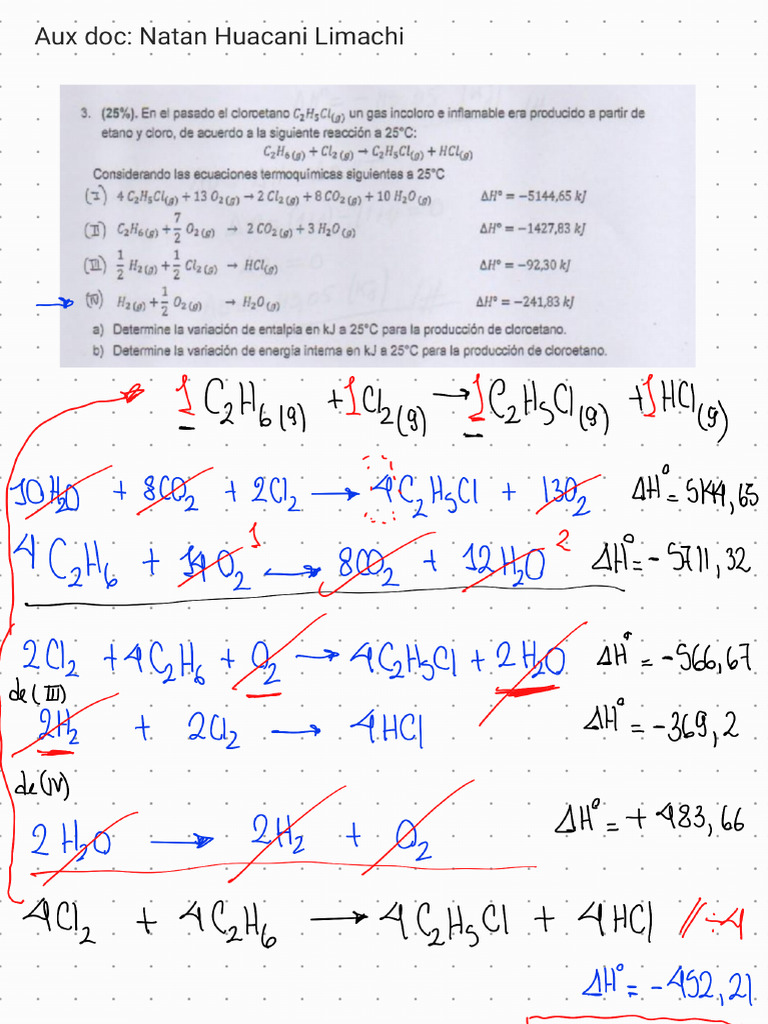 Aux doc: Natan Huacani Limachi
3. (25%). En el pasado el cloroetano C₂H₅Cl(g) un gas incoloro e inflamable era producido a partir de
etano y cloro, de acuerdo a la siguiente reacción a 25°C:
C₂H₆(g) + Cl₂(g) → C₂H₅Cl(g) + HCl(g)
Considerando las ecuaciones termoquímicas siguientes a 25°C
(I) 4 C₂H₅Cl(g) + 13 O₂(g) → 2 Cl₂(g) + 8 CO₂(g) + 10 H₂O(g) ΔH° = −5144,65 kJ
(II) C₂H₆(g) + 7/2 O₂(g) → 2 CO₂(g) + 3 H₂O(g) ΔH° = −1427,83 kJ
(III) 1/2 H₂(g) + 1/2 Cl₂(g) → HCl(g) ΔH° = −92,30 kJ
(IV) H₂(g) + 1/2 O₂(g) → H₂O(g) ΔH° = −241,83 kJ
a) Determine la variación de entalpía en kJ a 25°C para la producción de cloroetano.
b) Determine la variación de energía interna en kJ a 25°C para la producción de cloroetano.
1 C₂H₆(g) + 1 Cl₂(g) → 1 C₂H₅Cl(g) + 1 HCl(g)
10 H₂O + 8CO₂ + 2Cl₂ → 4 C₂H₅Cl + 13O₂ ΔH° = 5144,65
4 C₂H₆ + 14 O₂ 1 → 8CO₂ + 12 H₂O 2 ΔH° = -5711,32
2Cl₂ + 4C₂H₆ + O₂ → 4C₂H₅Cl + 2H₂O ΔH° = -566,67
de (III)
2H₂ + 2Cl₂ → 4HCl ΔH° = -369,2
de (IV)
2 H₂O → 2H₂ + O₂ ΔH° = +483,66
4Cl₂ + 4C₂H₆ → 4C₂H₅Cl + 4HCl // ÷4
ΔH° = -452,21